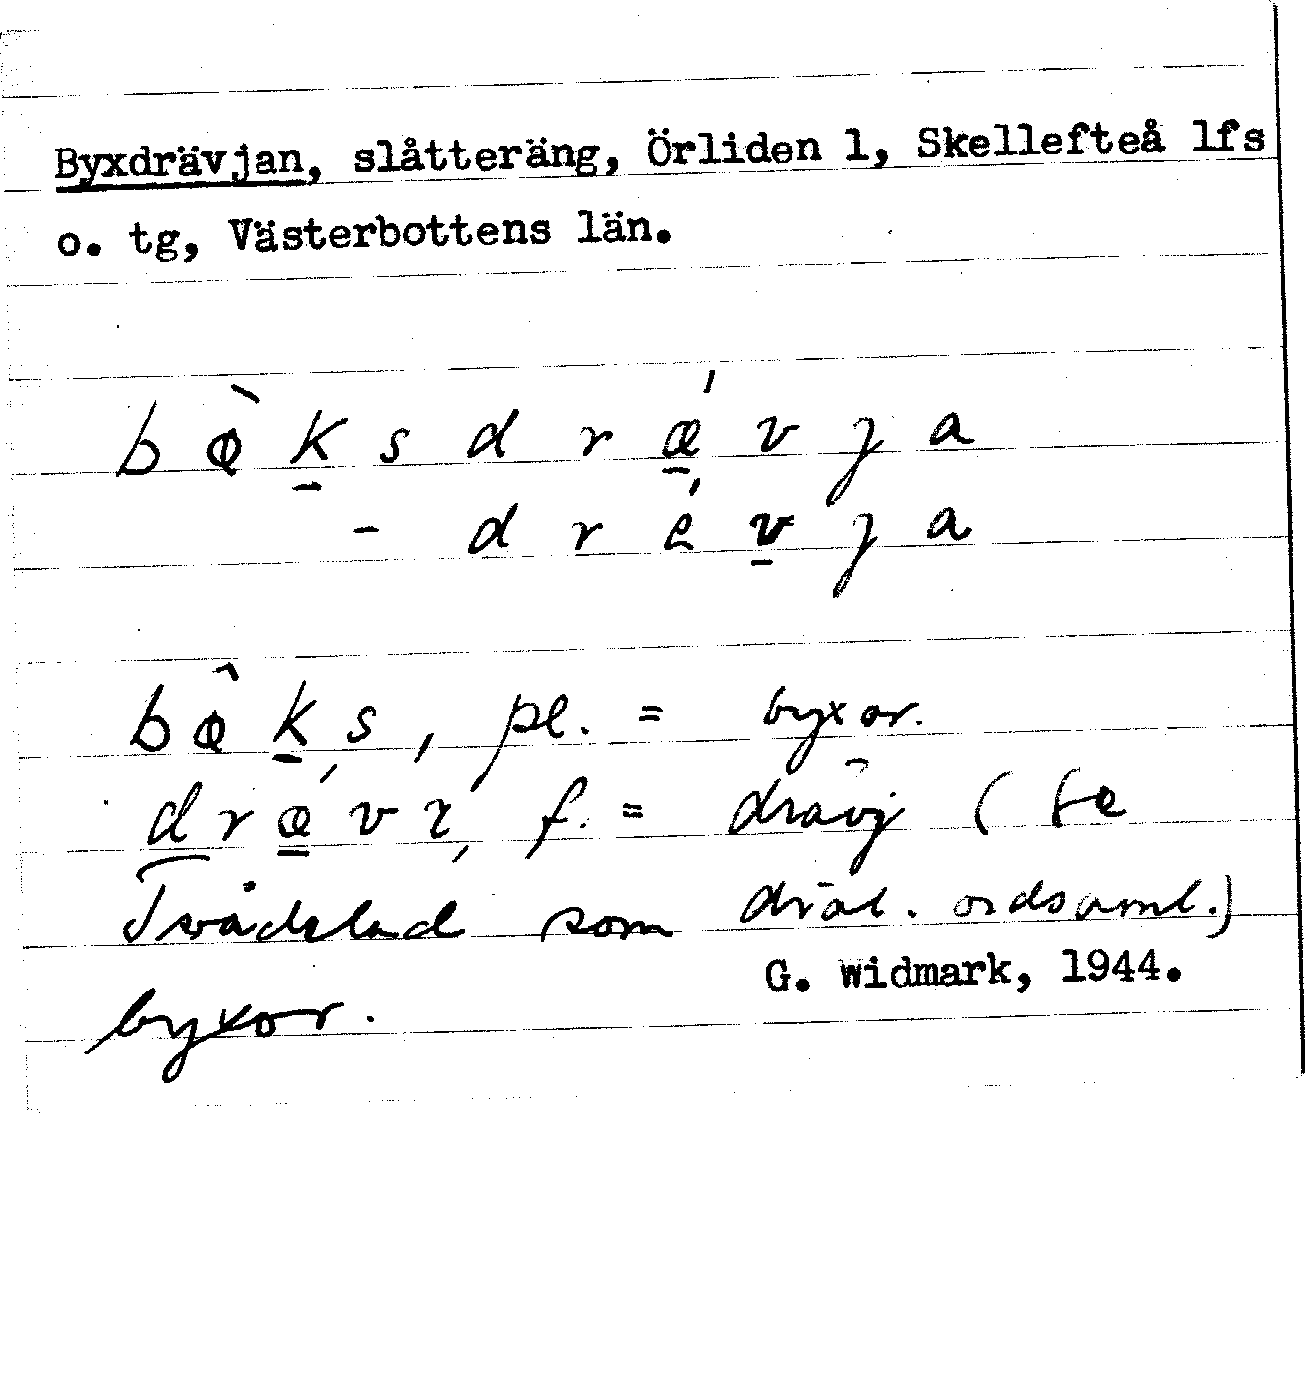 Byxdrävjan, slåtteräng, Örliden 1, Skellefteå lfs
o. tg, Västerbottens län.
bø̀k̲sdrǽ̲vja
- drév̲ja
bø̂k̲s, pl. = byxor.
drǽ̲vɪ, f. = drävj (se dial. ordsaml.)
Tvådelad som byxor.
G. Widmark, 1944.